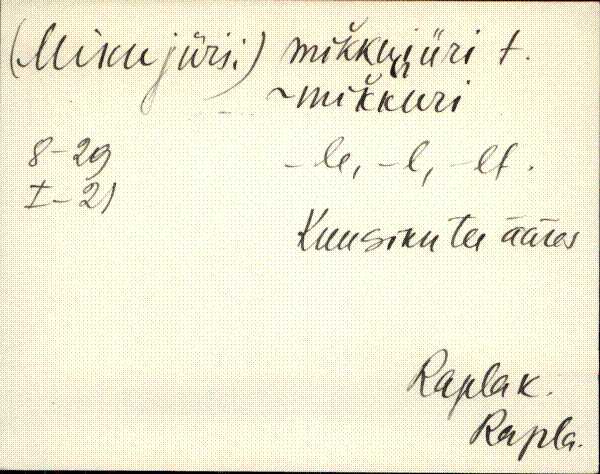 (Miku jüri.) mi̬kkujüri t.
~ mikkuri
8-29 -le, -l, -lt.
I-21
Kuusiku tee ääres
Rapla k.
Rapla.